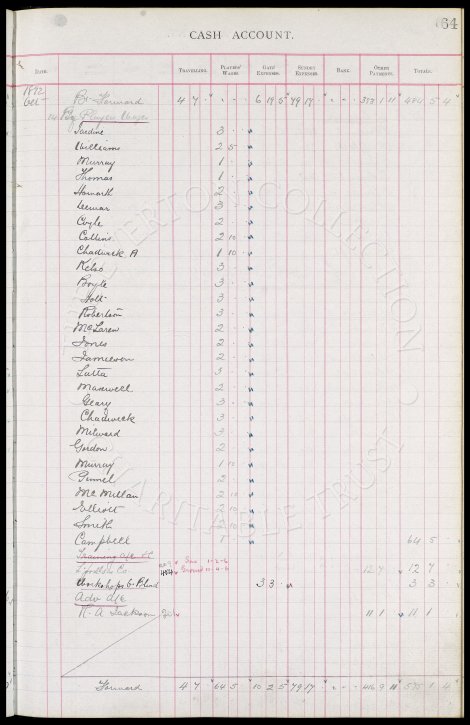 64
CASH ACCOUNT.
DATE. TRAVELLING. PLAYERS' WAGES GATE EXPENSES. SUNDRY EXPENSES. BANK. OTHER PAYMENTS. TOTALS.
1892
Oct B- Forward 4 7 6 19 5 79 17 393 1 11 484 5 4
14 By Players Wages
Jardine 3
Williams 2 5
Murray 1
Thomas 1
Howarth 2
Leemar 3
Coyle 2
Collins 2 10
Chadwick A 1 10
Kelso 3
Boyle 3
Holt 3
Robertson 3
McLaren 2
Jones 2
Jamieson 2
Latta 3
Maxwell 2
Geary 3
Chadwick 3
Milward 3
Gordon 2
Murray 1 10
Pinnel 2
McMillan 2 10
Elliott 2 10
Smith 2 10
Campbell 1 64 5
Training a/c
Co 12 9 12 9
Workshops for Blind 3 3 3 3
Adv a/c
R. A Jackson 11 1 11 1
Forward 4 7 64 5 10 2 5 79 17 416 9 11 575 1 4
EVERTON COLLECTION
CHARITABLE TRUST